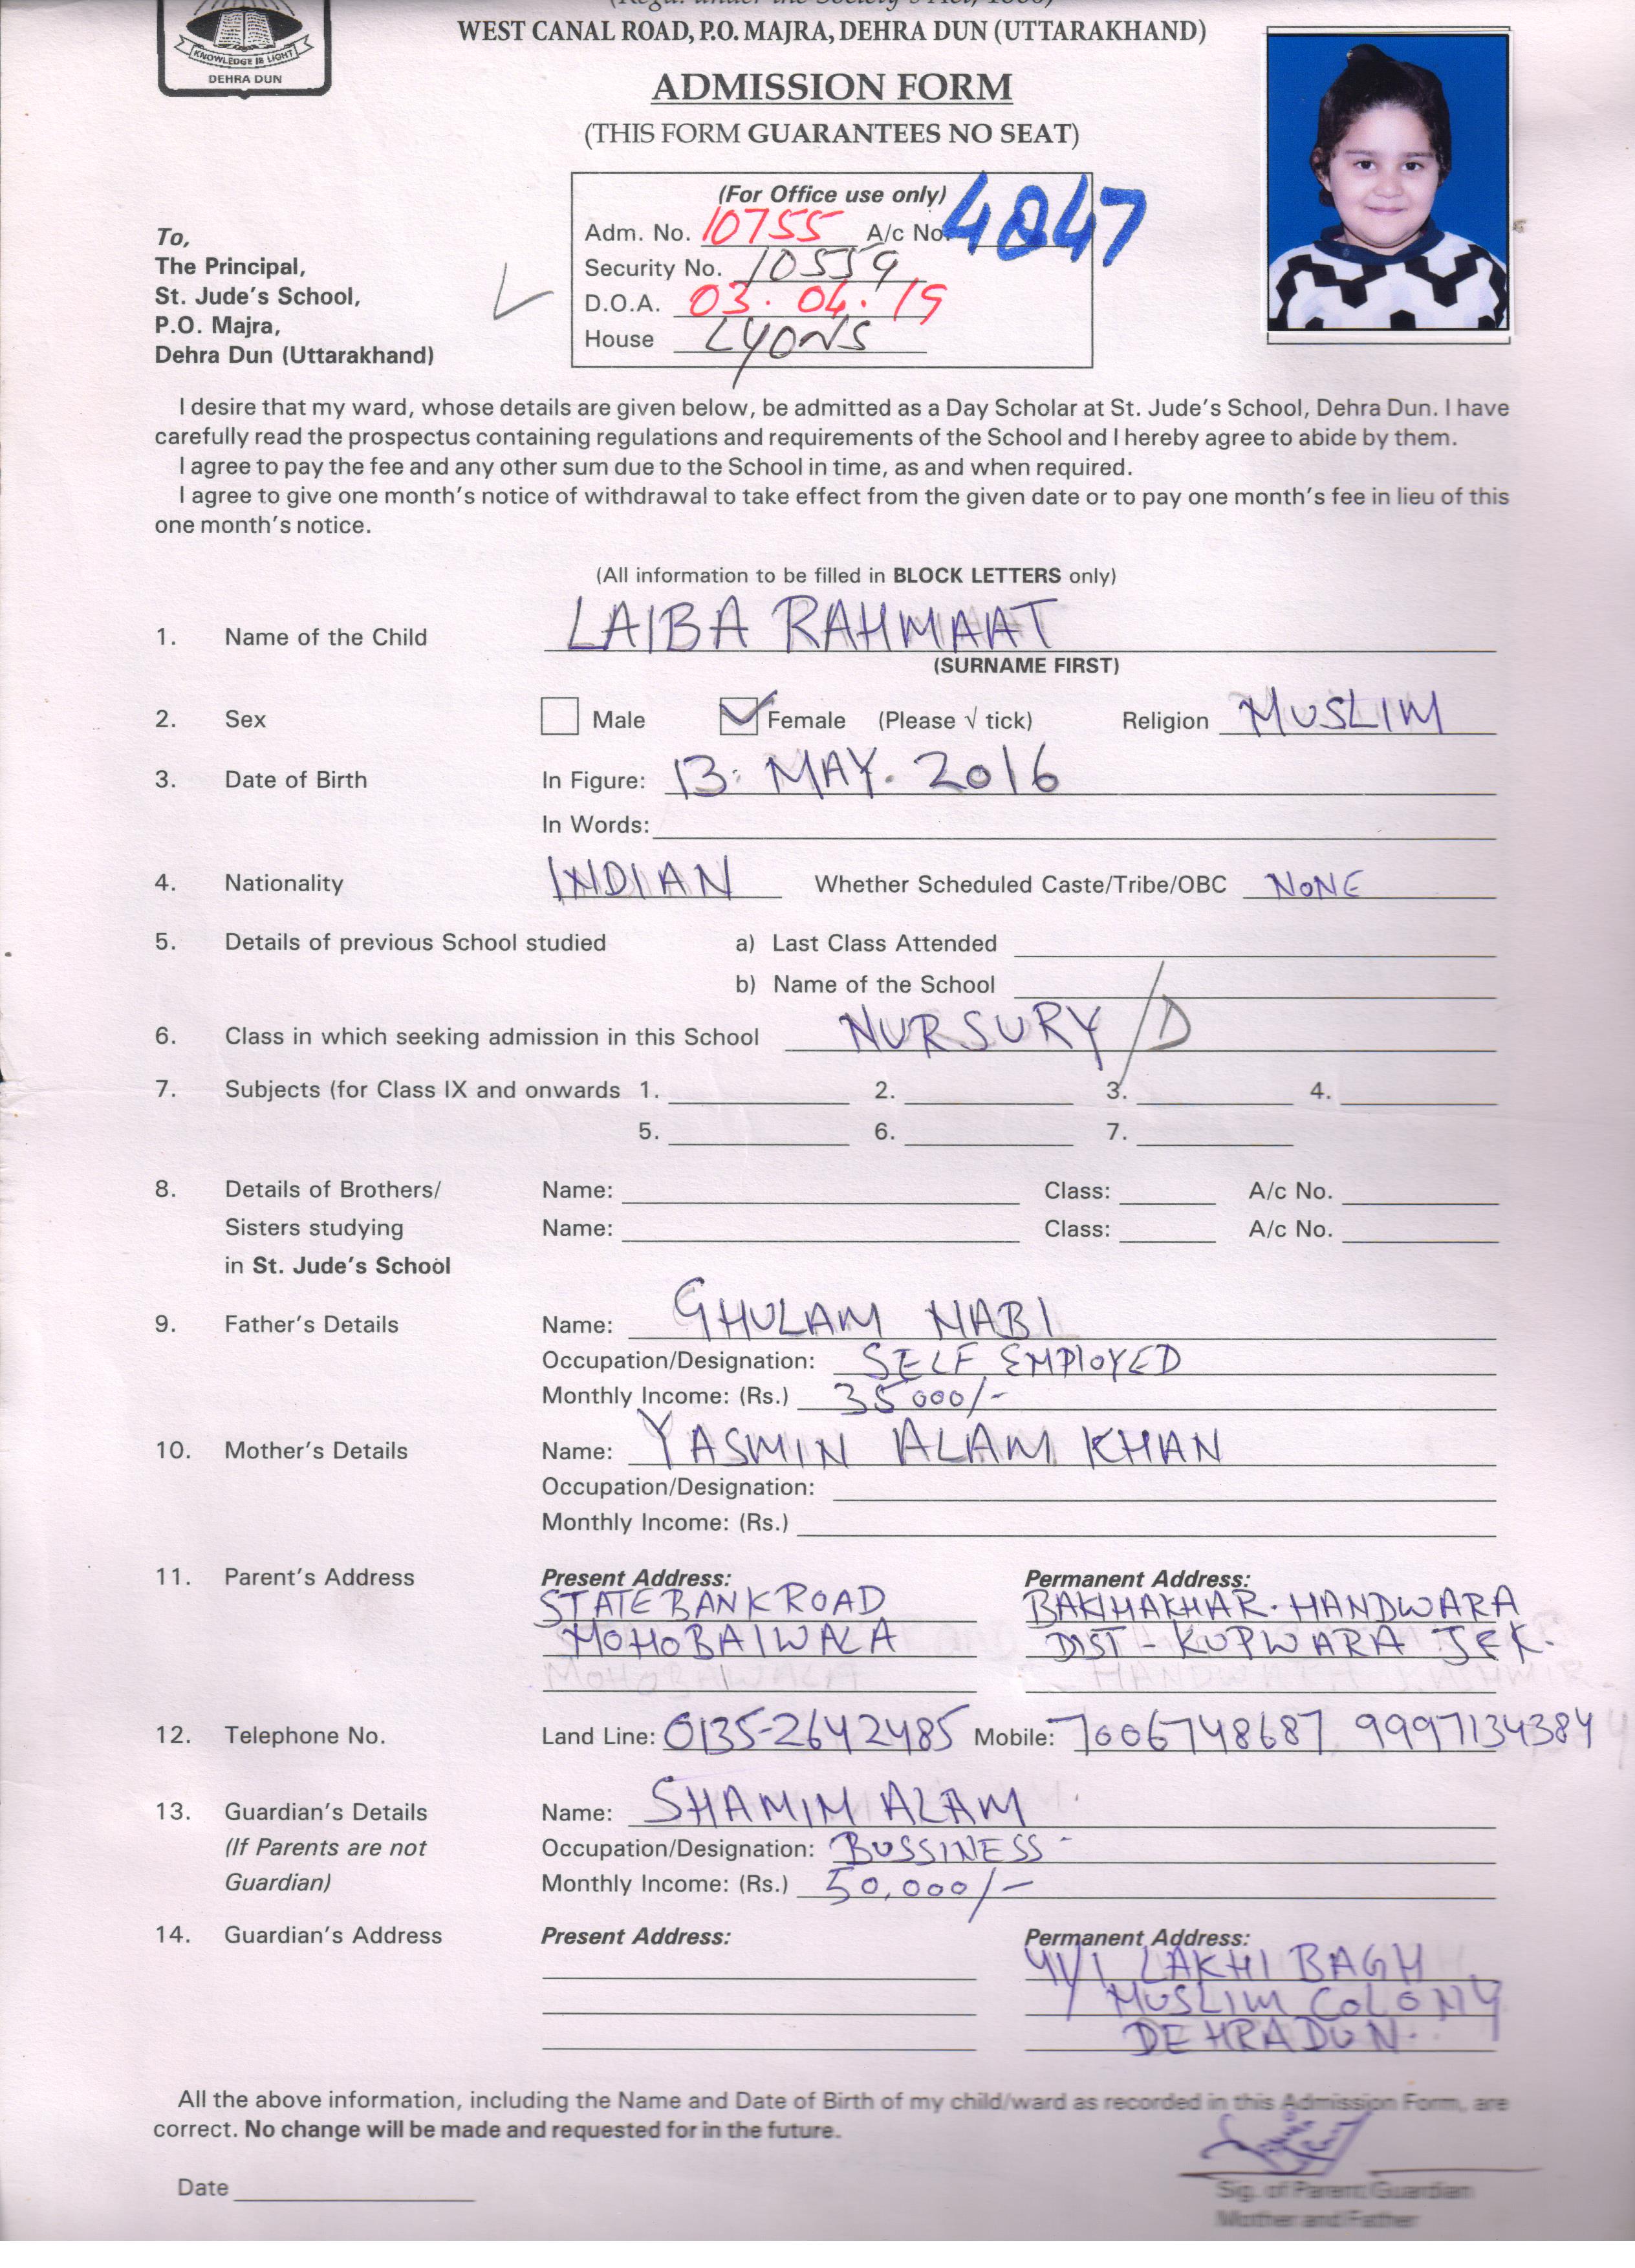 WEST CANAL ROAD, P.O. MAJRA, DEHRA DUN (UTTARAKHAND)
KNOWLEDGE IS LIGHT
DEHRA DUN
ADMISSION FORM
(THIS FORM GUARANTEES NO SEAT)
(For Office use only)
Adm. No. 10755 A/c No. 4847
Security No. 10559
D.O.A. 03.04.19
House LYONS
To,
The Principal,
St. Jude's School,
P.O. Majra,
Dehra Dun (Uttarakhand)
I desire that my ward, whose details are given below, be admitted as a Day Scholar at St. Jude's School, Dehra Dun. I have
carefully read the prospectus containing regulations and requirements of the School and I hereby agree to abide by them.
I agree to pay the fee and any other sum due to the School in time, as and when required.
I agree to give one month's notice of withdrawal to take effect from the given date or to pay one month's fee in lieu of this
one month's notice.
(All information to be filled in BLOCK LETTERS only)
1. Name of the Child LAIBA RAHMAAT
(SURNAME FIRST)
2. Sex Male Female (Please √ tick) Religion MUSLIM
3. Date of Birth In Figure: 13. MAY. 2016
In Words:
4. Nationality INDIAN Whether Scheduled Caste/Tribe/OBC NONE
5. Details of previous School studied a) Last Class Attended
b) Name of the School
6. Class in which seeking admission in this School NURSURY/D
7. Subjects (for Class IX and onwards 1. 2. 3. 4.
5. 6. 7.
8. Details of Brothers/ Name: Class: A/c No.
Sisters studying Name: Class: A/c No.
in St. Jude's School
9. Father's Details Name: GHULAM NABI
Occupation/Designation: SELF EMPLOYED
Monthly Income: (Rs.) 35000/-
10. Mother's Details Name: YASMIN ALAM KHAN
Occupation/Designation:
Monthly Income: (Rs.)
11. Parent's Address Present Address: Permanent Address:
STATE BANK ROAD BAKIHAKHAR. HANDWARA
MOHOBAIWALA DIST - KUPWARA J&K.
12. Telephone No. Land Line: 0135-2642485 Mobile: 7006748687 9997134384
13. Guardian's Details Name: SHAMIM ALAM
(If Parents are not Occupation/Designation: BUSSINESS -
Guardian) Monthly Income: (Rs.) 50,000/-
14. Guardian's Address Present Address: Permanent Address:
41/1 LAKHI BAGH
MUSLIM COLONY
DEHRADUN.
All the above information, including the Name and Date of Birth of my child/ward as recorded in this Admission Form, are
correct. No change will be made and requested for in the future.
Date
Sig. of Parent/Guardian
Mother and Father